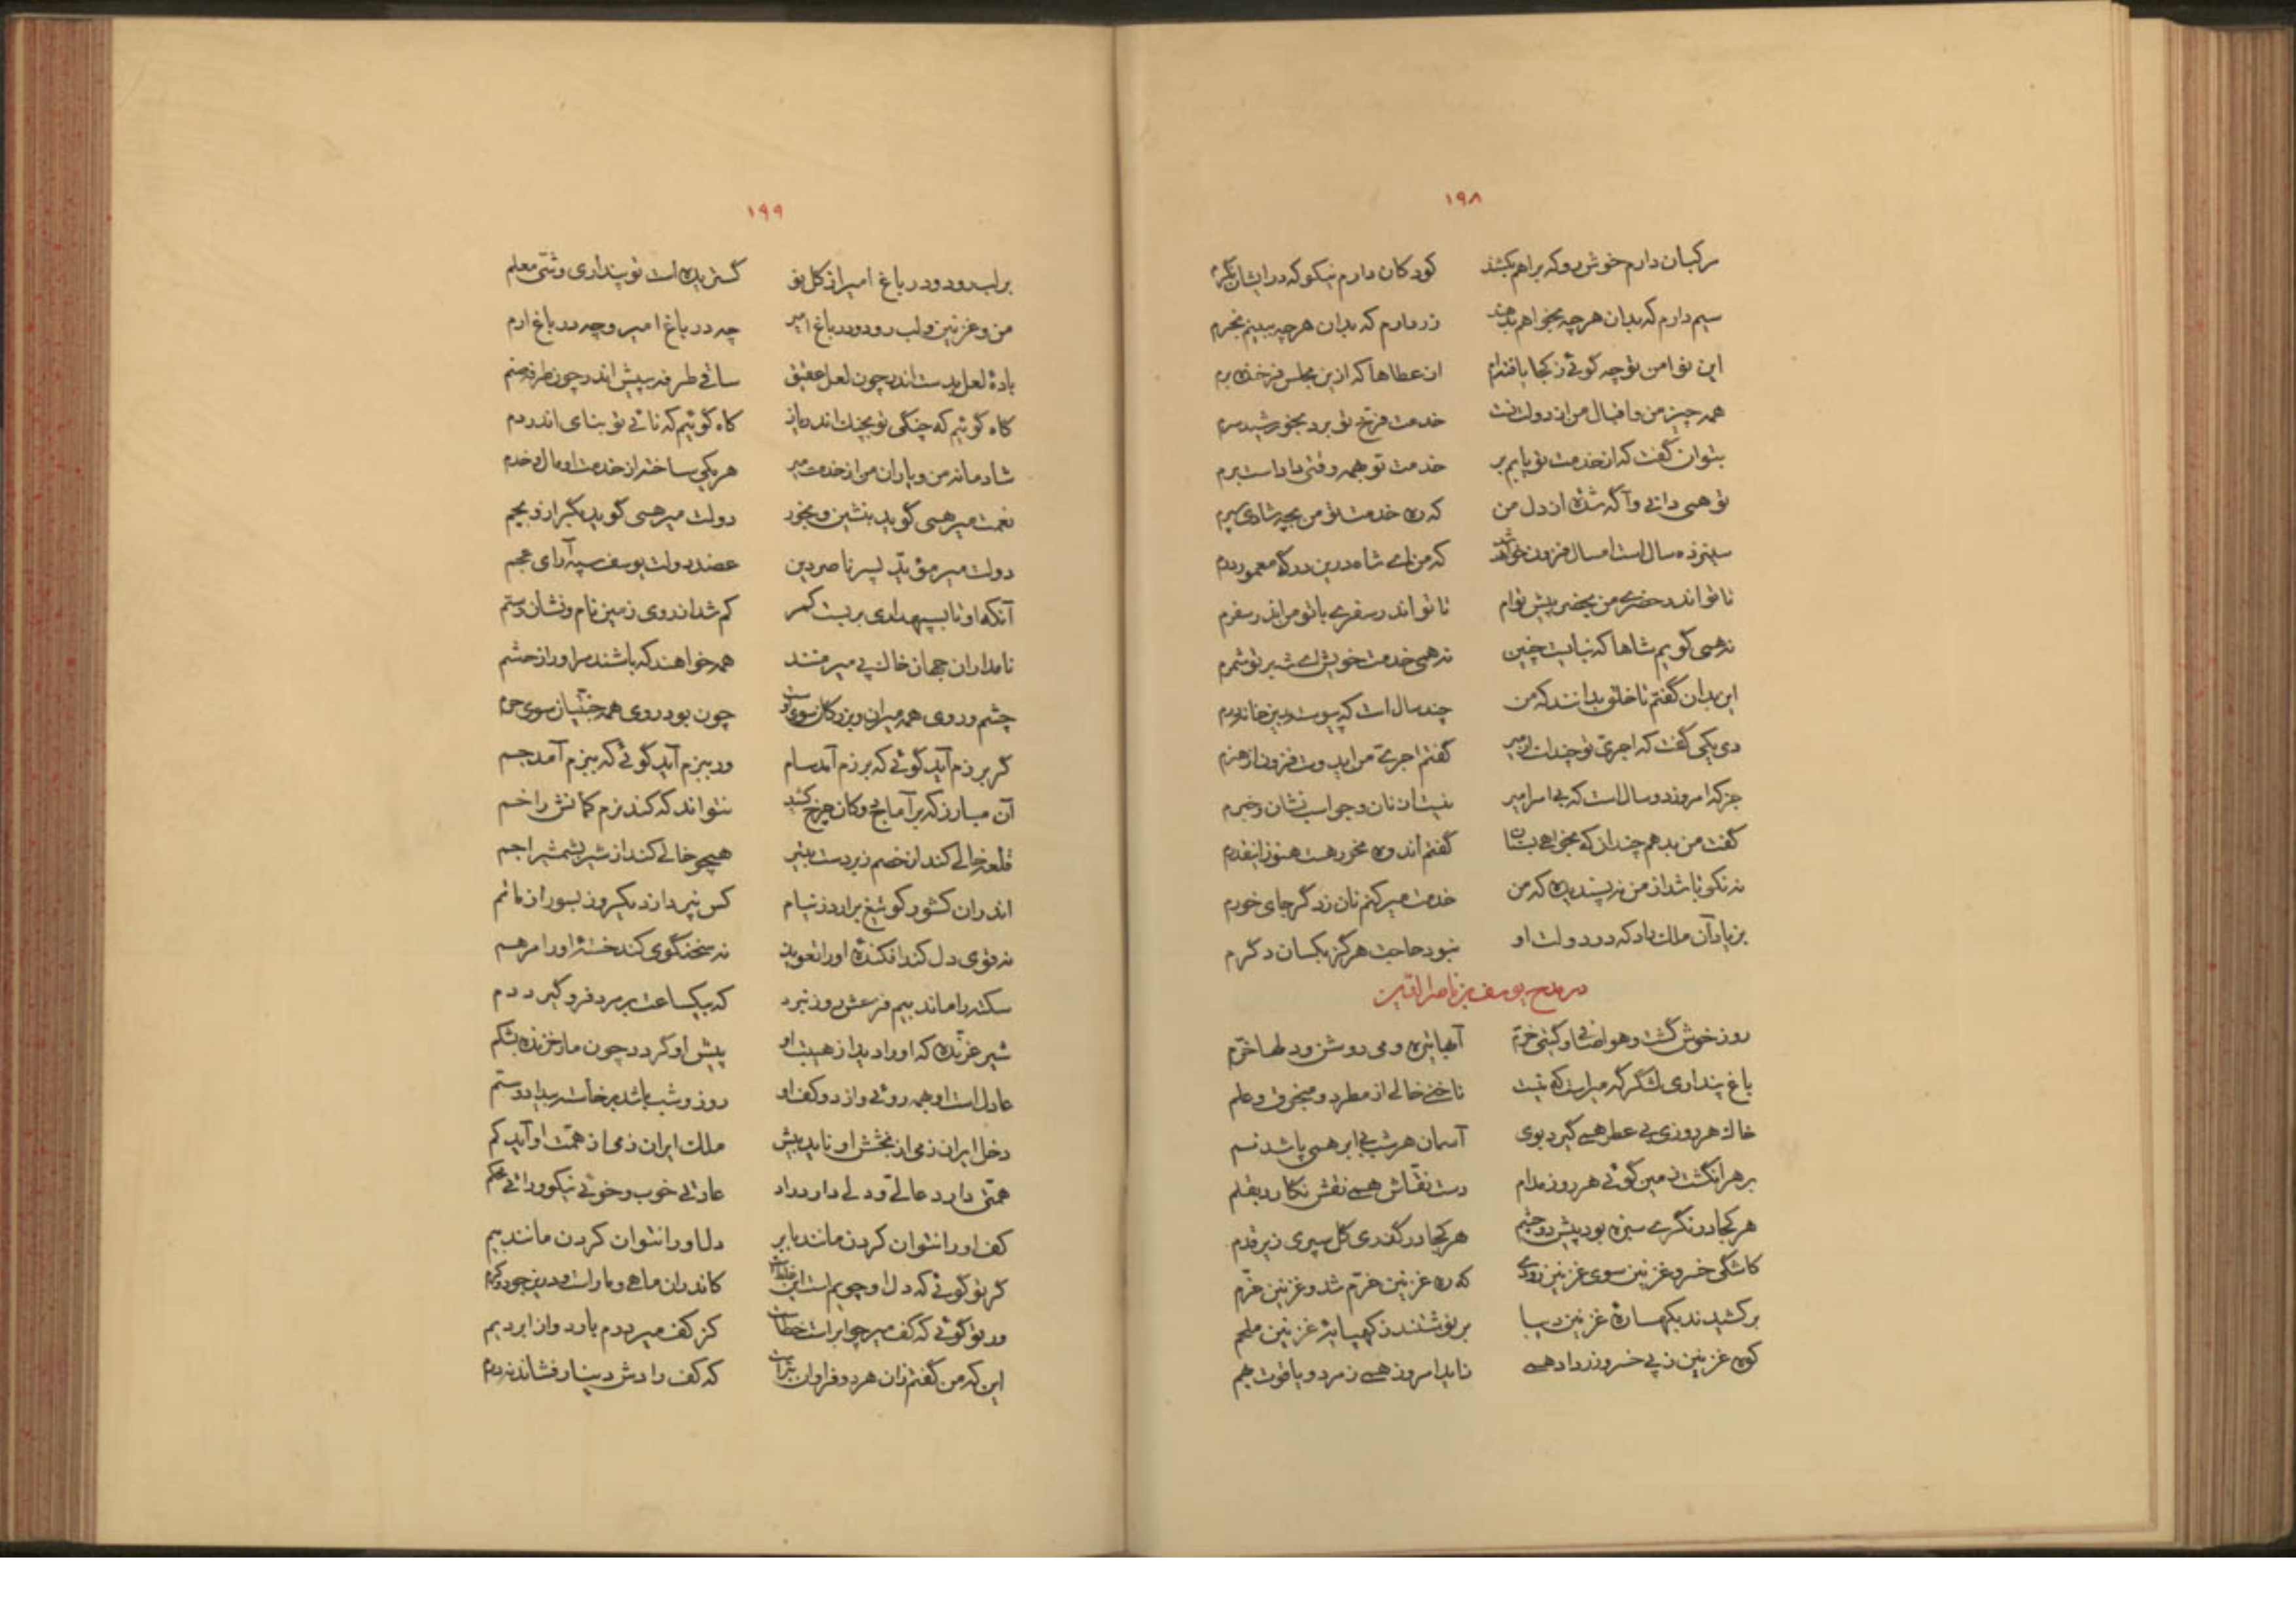 ۱۹۸
مرکبان دارم خوش رو که براهم بکشند کودکان دارم نیکو که در ایشان نگرم
سیم دارم که بدان هرچه بخواهم بدهند زر دارم که بدان هرچه ببینم بخرم
این نوا من تو چه گوئی ز کجا یافته‌ام از عطاها که ازین مجلس فرخنده برم
همه چیز من و اقبال من از دولت تست خدمت فرخ تو برد بخورشید سرم
بتوان گفت که از خدمت تو یابم بر خدمت تو بهمه وقتی داداست برم
تو همی دانی و آگه شدهٔ از دل من که ره خدمت تو من بچه شادی سپرم
سیزده سال است امسال فزون خواهد شد که من ای شاه درین درگه معمور درم
تا تو اندر حضری من بحضر پیش توام تا تو اندر سفری با تو من اندر سفرم
نه همی گویم شاها که نبایست چنین نه همی خدمت خویش ای شه بر تو شمرم
این بدان گفتم تا خلق بدانند که من چند سال است که پیوسته بدین خانه درم
دی یکی گفت که اجری تو چند است ز میر گفتم اجری من ایدوست فزون از هنرم
جز که امروز دو سال است که بی امر امیر نیست از نان و جو اسب نشان و خبرم
گفت من بدهم چندانکه بخواهی بستان گفتم اندوه مخور هست هنوز اینقدرم
نه نکو باشد از من نه پسندیده که من خدمت میر کنم نان ز دگر جای خورم
بزیاد آن ملک راد که در دولت او نبود حاجت هرگز بکسان دگرم
در مدح یوسف بن ناصرالدین
روز خوش گشت و هوا صافی و گیتی خرم آبها تیره و می روشن و دلها خرم
باغ پنداری لشگرگه میر است که نیست ناخنی خالی از مطرد و منجوق و علم
خاک هر روزی بی عطر همی گیرد بوی آسمان هر شب بی ابر همی پاشد نم
بر هر انگشت زمین گوئی هر روز مدام دست نقاش همی نقش نگارد بقلم
هر کجا در نگری سبزه بود پیش دو چشم هر کجا در گذری گل سپری زیر قدم
کاشکی خسرو غزنین سوی غزنین رودی که ره غزنین خرم شد و غزنین خرم
برکشیدند بکهسارهٔ غزنین دیبا بر نوشتند ز کهپایهٔ غزنین ملحم
کوه غزنین ز پی خسرو زر زاد همی زاید امروز همی زمرد و یاقوت بهم
۱۹۹
بر لب رود و در باغ امیر از گل نو گستریده است تو پنداری وشی معلم
من و غزنین و لب رود و در باغ امیر چه در باغ امیر و چه در باغ ارم
بادهٔ لعل بدست اندر چون لعل عقیق ساقی طرفه بپیش اندر چون طرفه صنم
گاه گوئیم که چنگی تو بچنگ اندر یاز گاه گوئیم که نائی تو بنای اندر دم
شادمانه من و یاران من از خدمت میر هر یکی ساخته از خدمت او مال و خدم
نعمت میر همی گوید بنشین و بخور دولت میر همی گوید بگراز و بچم
دولت میر مؤید پسر ناصر دین عضد دولت یوسف سپه آرای عجم
آنکه او تا بسپهداری بربست کمر گم شد از روی زمین نام و نشان رستم
نامداران جهان خاک پی میر منند همه خواهند که باشند مر او را ز حشم
چشم و روی همه میران و بزرگان سوی اوست چون بود روی همه جنتیان سوی حرم
گر برزم آید گوئی که برزم آمد سام ور ببزم آید گوئی که ببزم آمد جم
آن مبارز که بر آماج دو کان چرخ کشد نتواند که کند نرم کمانش را خم
قلعه خالی کند از خصم زبردست بتیر همچو خالی کند از شیر بشمشیر اجم
اندر آن کشور کو تیغ برآرد ز نیام کس نپردازد یکروز بسور از ماتم
نه قوی دل کند افکندهٔ او را تعویذ نه سخنگوی کند خستهٔ او را مرهم
سکته را ماند بیم فزعش روز نبرد که بیکساعت بر مرد فرو گیرد دم
شیر غرنده که او را دید از هیبت او پیش او گردد چون مار خزنده بشکم
عادل است او بهمه روئی و از دو کف او روز و شب باشد بر خاسته بیداد و ستم
دخل ایران زمی از بخشش او ناید بیش ملک ایران زمی از همت او آید کم
همتی دارد عالی و دلی دارد راد عادتی خوب و خوئی نیکو و رائی محکم
کف او را نتوان کردن مانند بابر دل او را نتوان کردن مانند بیم
گر تو گوئی که دل او چو یم است این غلط است کاندر آن ماهی و مار است و درین جود و کرم
ور تو گوئی که کف میر چو ابر است خطاست کز کف میر درم بارد و از ابر دیم
این که من گفتم زان هر دو فراوان بتر است که کف رادش دینار فشاند نه درم